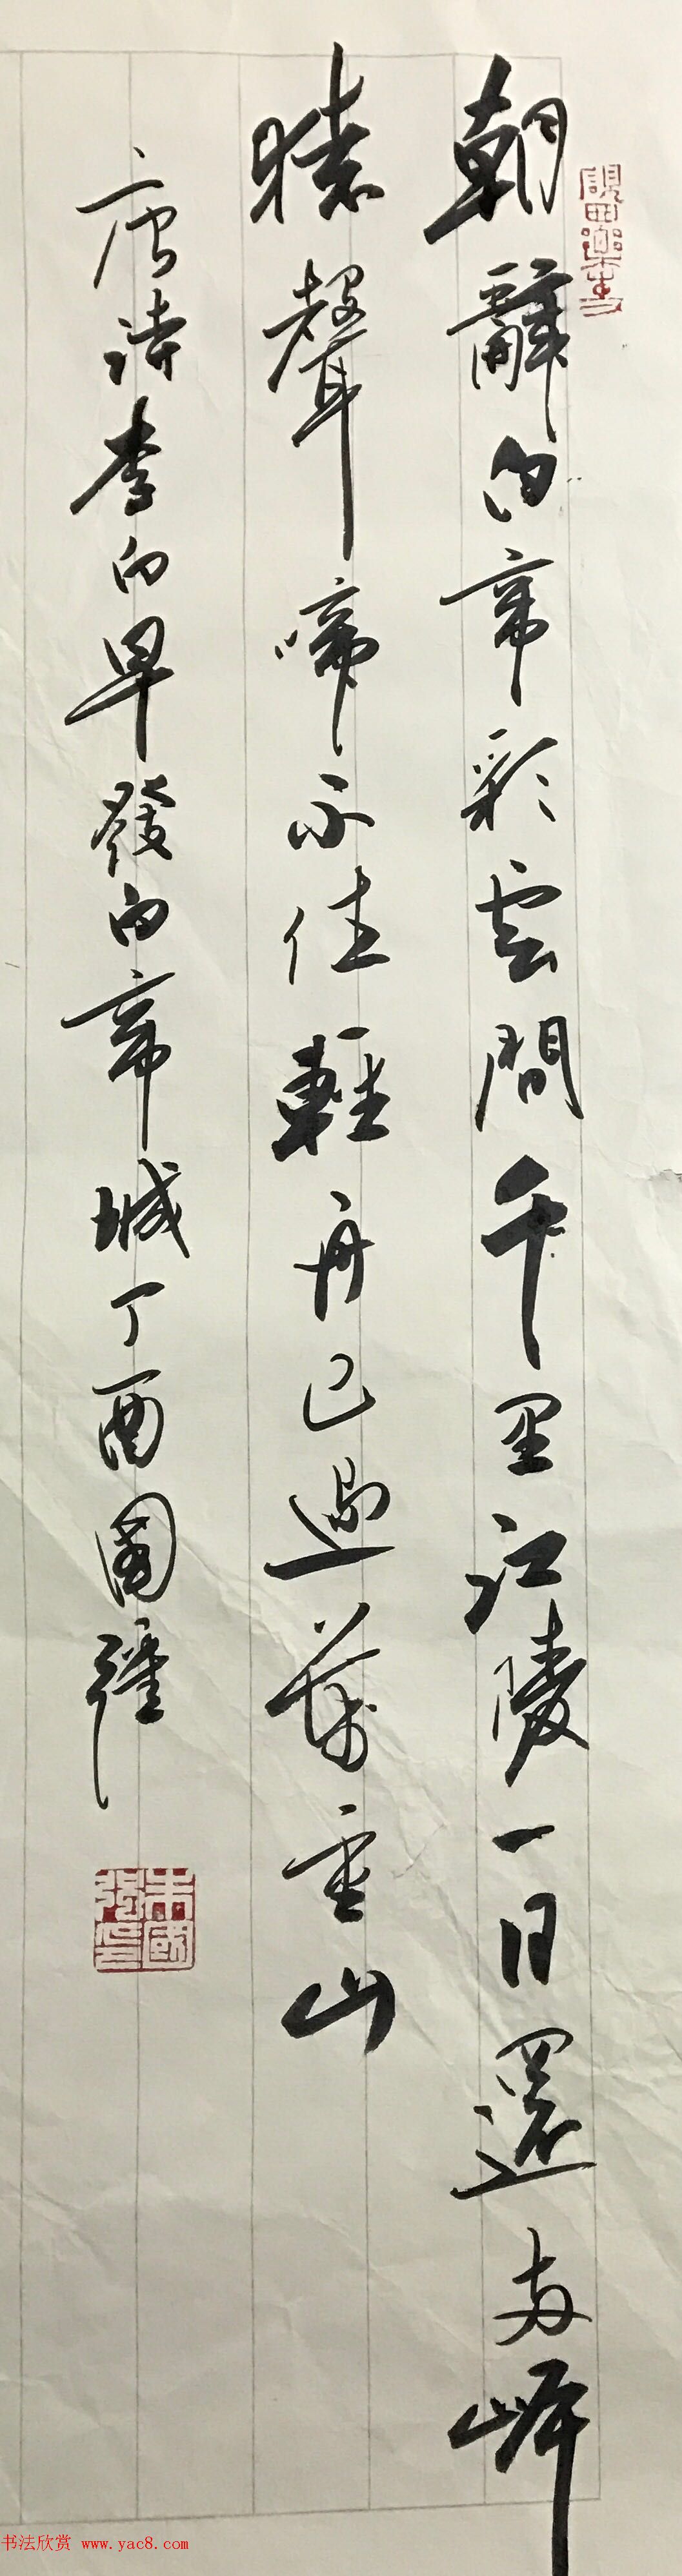 朝辭白帝彩雲間千里江陵一日還兩岸
猿聲啼不住輕舟已過萬重山
唐詩李白早發白帝城丁酉國強
硯田樂書
朱國強印
书法欣赏 www.yac8.com